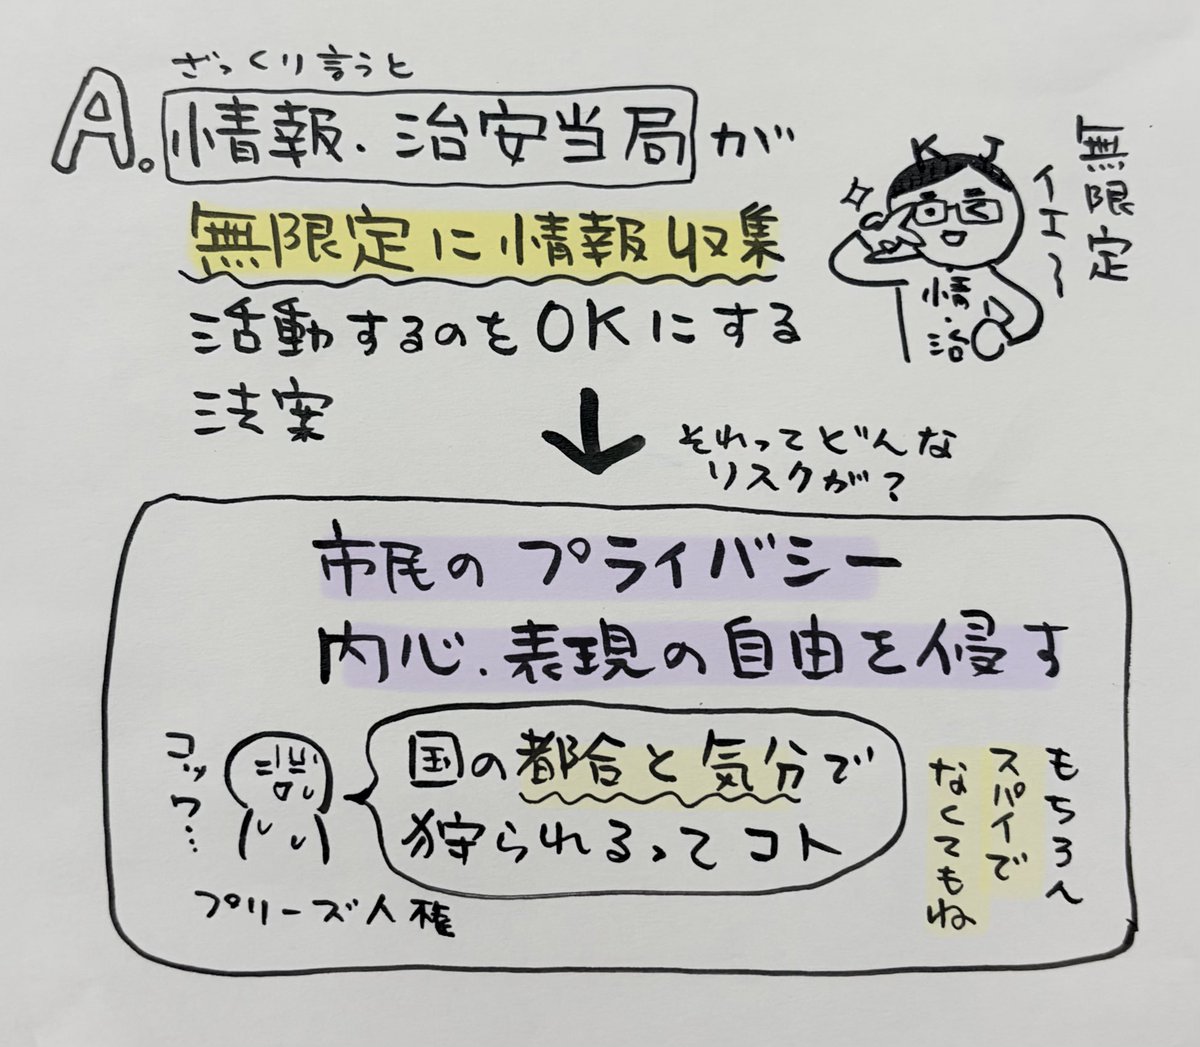 ざっくり言うと
A. 情報.治安当局が
無限定に情報収集
活動するのをOKにする
法案
K J
無限定
イエ〜
情・治
それってどんな
リスクが?
市民のプライバシー
内心.表現の自由を侵す
国の都合と気分で
狩られるってコト
コッワ…
プリーズ人権
もちろん
スパイで
なくてもね